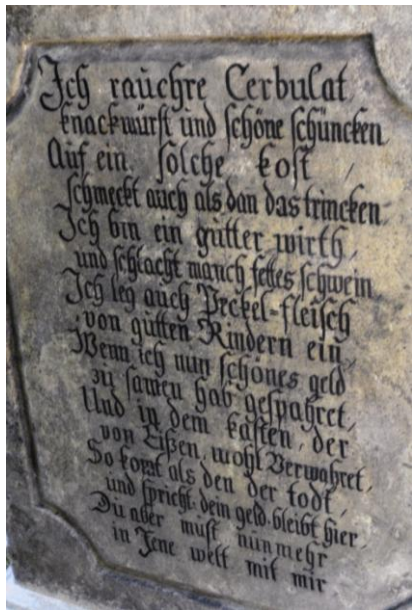 Ich rauchre Cerbulat,
knackwürst und schöne schüncken
Auf ein solche kost,
schmeckt auch als dan das trincken
Ich bin ein gutter wirth,
und schlacht manch fettes schwein,
Ich leg auch Peckel=fleisch
von gutten Rindern ein,
Wenn ich nun schönes geld
zu samen hab gespahret,
Und in dem kasten, der
von Eißen, wohl Verwahret,
So komt als den der todt,
und spricht: dein geld bleibt hier,
Du aber must nunmehr
in Jene welt mit mir.